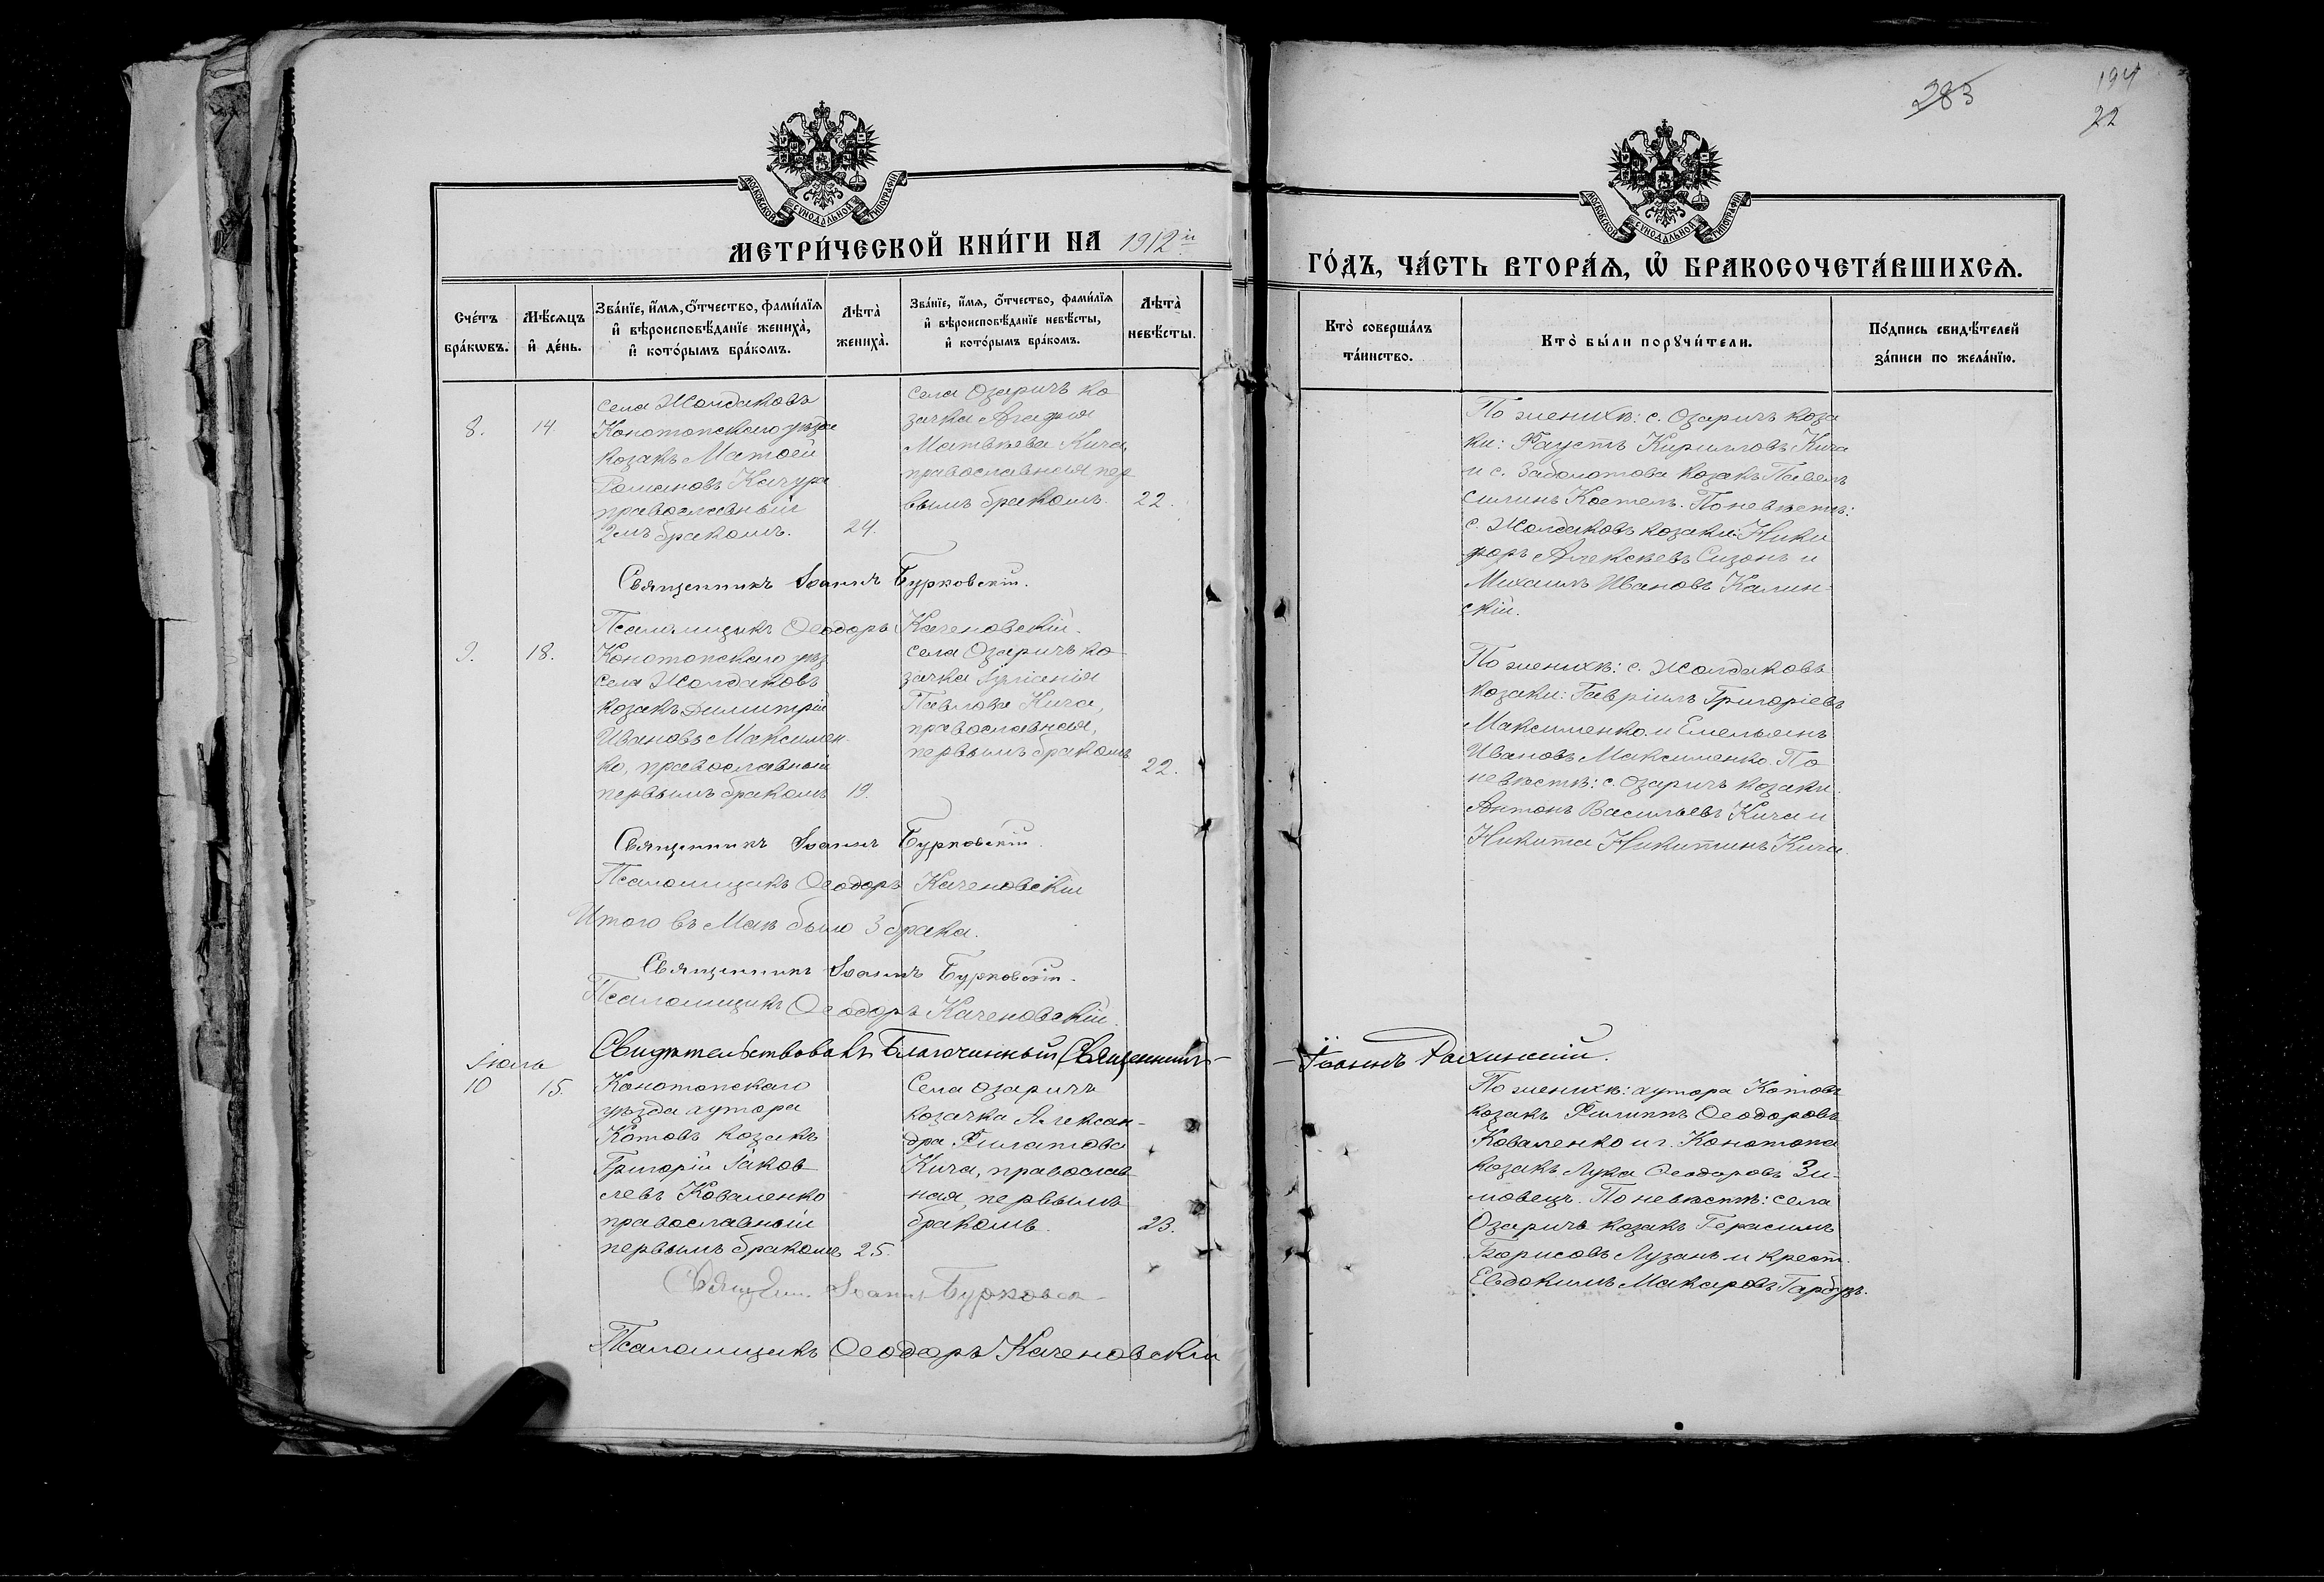 МОСКОВСКОЙ СѴНОДАЛЬНОЙ ТИПОГРАФІИ
МЕТРИ́ЧЕСКОЙ КНИ́ГИ НА 1912й
Сче́тъ бра́кѡвъ.
Мѣ́сяцъ и҆ де́нь.
Зва́нїе, и҆́мѧ, ѻ҆́тчество, фами́лїѧ
и҆ вѣроисповѣ́данїе жениха̀,
и҆ кото́рымъ бра́комъ.
Лѣта̀ жениха̀.
Зва́нїе, и҆́мѧ, ѻ҆́тчество, фами́лїѧ
и҆ вѣроисповѣ́данїе невѣ́сты,
и҆ кото́рымъ бра́комъ.
Лѣта̀ невѣ́сты.
8.
14
Села Жолдаковъ
Конотопскаго уѣзда
козакъ Матѳей
Романовъ Качура
православный
2мъ бракомъ.
24.
Села Озаричъ ко
зачка Агафія
Матвѣева Кича,
православная пер
вымъ бракомъ.
22.
Священникъ Іоаннъ Бурковскій.
Псаломщикъ Ѳеодоръ Каченовскій.
9.
18.
Конотопскаго уѣз
села Жолдаковъ
козакъ Димитрій
Ивановъ Максимен-
ко, православный
первымъ бракомъ
19.
Села Озаричъ ко
зачка Іуліанія
Павлова Кича,
православная,
первымъ бракомъ
22.
Священникъ Іоаннъ Бурковскій.
Псаломщикъ Ѳеодоръ Каченовскій
Итого въ Маѣ было 3 брака.
Священникъ Іоаннъ Бурковскій.
Псаломщикъ Ѳеодоръ Каченовскій.
Свидѣтельствовалъ Благочинный Священникъ-
Іюль
10
15.
Конотопскаго
уѣзда хутора
Котовъ козакъ
Григорій Іаков
левъ Коваленко
православный
первымъ бракомъ
25.
Села Озаричъ
козачка Алексан-
дра Филатова
Кича, православ
ная, первымъ
бракомъ.
23.
Іоаннъ Бурковск
Псаломщикъ Ѳеодоръ Каченовскій
283
194
22
МОСКОВСКОЙ СѴНОДАЛЬНОЙ ТИПОГРАФІИ
ГО́ДЪ, ЧА́СТЬ ВТОРА́Ѧ, Ѽ БРАКОСОЧЕТА́ВШИХСѦ.
Кто̀ соверша́лъ
та́инство.
Кто̀ бы́ли порꙋчи́тели.
По́дпись свидѣ́телей
за́писи по жела́нїю.
По женихѣ: с. Озаричъ коза
ки: Фаустъ Кирилловъ Кича
и с. Заболотова козакъ Павелъ
Силинъ Костел. По невѣстѣ:
с. Жолдаковъ козаки: Ники
форъ Алексѣевъ Сизонъ и
Михаилъ Ивановъ Калин-
скій.
По женихѣ: с. Жолдаковъ
козаки: Гавріилъ Григоріевъ
Максименко и Емельянъ
Ивановъ Максименко. По
невѣстѣ: с. Озаричъ козаки
Антонъ Васильевъ Кича и
Никита Никитинъ Кича.
-Іоаннъ
По женихѣ: хутора Котовъ
козакъ Филиппъ Ѳеодоровъ
Коваленко и г. Конотопа
козакъ Лука Ѳеодоровъ Зи-
мовецъ. По невѣстѣ: села
Озаричъ козакъ Герасимъ
Борисовъ Лузанъ и крест.
Евдокимъ Макаровъ Гарбузъ.